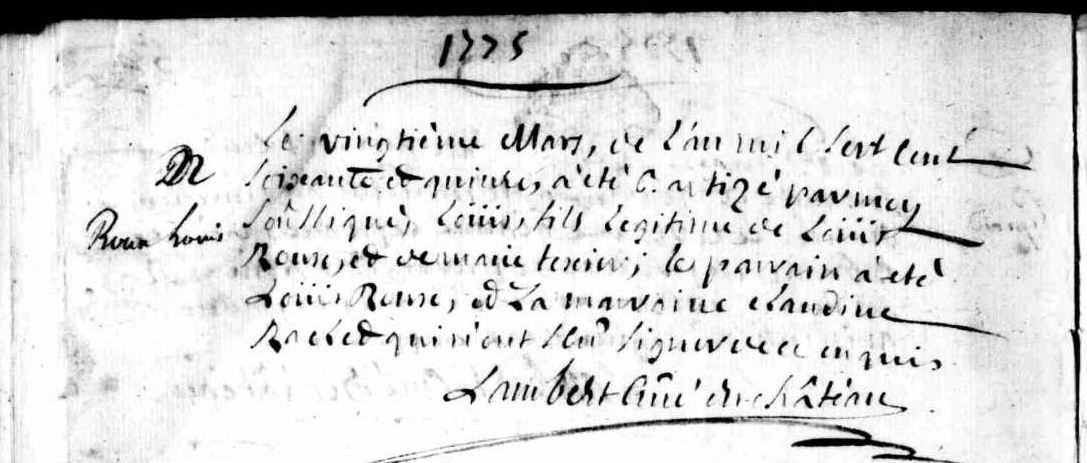 1775
Le vingtième Mars, de L'an mil Sept Cent
Soixante et quinze, a été Batizé par moy
Soussigné, Loüis, fils Legitime de Loüis
Roux Louis
Roux, et de marie ; le parrain a été
Loüis Roux, et La marraine claudine
qui n'ont sçu signer de ce enquis
Lambert Curé du château